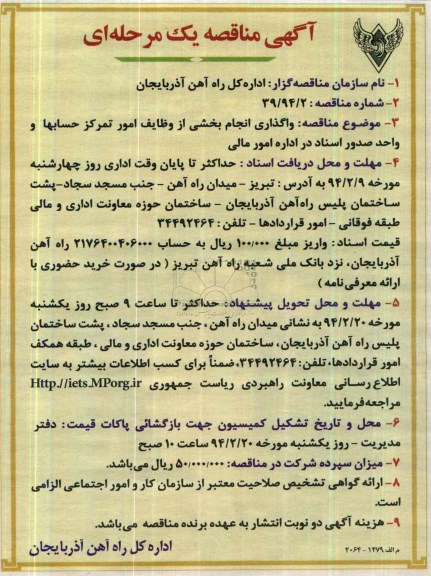 آگهی مناقصه یک مرحله‌ای
۱- نام سازمان مناقصه‌گزار: اداره‌کل راه آهن آذربایجان
۲- شماره مناقصه: ۳۹/۹۴/۲
۳- موضوع مناقصه: واگذاری انجام بخشی از وظایف امور تمرکز حسابها و
واحد صدور اسناد در اداره امور مالی
۴- مهلت و محل دریافت اسناد : حداکثر تا پایان وقت اداری روز چهارشنبه
مورخه ۹۴/۲/۹ به آدرس : تبریز - میدان راه آهن - جنب مسجد سجاد-پشت
ساختمان پلیس راه‌آهن آذربایجان - ساختمان حوزه معاونت اداری و مالی
طبقه فوقانی - امور قراردادها - تلفن: ۳۴۴۹۲۴۶۴
قیمت اسناد: واریز مبلغ ۱۰۰/۰۰۰ ریال به حساب ۲۱۷۶۴۰۰۴۰۶۰۰۰ راه آهن
آذربایجان، نزد بانک ملی شعبه راه آهن تبریز ( در صورت خرید حضوری با
ارائه معرفی‌نامه )
۵- مهلت و محل تحویل پیشنهاد: حداکثر تا ساعت ۹ صبح روز یکشنبه
مورخه ۹۴/۲/۲۰ به نشانی میدان راه آهن ، جنب مسجد سجاد ، پشت ساختمان
پلیس راه آهن آذربایجان، ساختمان حوزه معاونت اداری و مالی ، طبقه همکف
امور قراردادها، تلفن: ۳۴۴۹۲۴۶۴،ضمناً برای کسب اطلاعات بیشتر به سایت
اطلاع رسانی معاونت راهبردی ریاست جمهوری Http.//iets.MPorg.ir
مراجعه‌فرمایید.
۶- محل و تاریخ تشکیل کمیسیون جهت بازگشائی پاکات قیمت: دفتر
مدیریت - روز یکشنبه مورخه ۹۴/۲/۲۰ ساعت ۱۰ صبح
۷- میزان سپرده شرکت در مناقصه: ۵۰/۰۰۰/۰۰۰ ریال می‌باشد.
۸- ارائه گواهی تشخیص صلاحیت معتبر از سازمان کار و امور اجتماعی الزامی
است.
۹- هزینه آگهی دو نوبت انتشار به عهده برنده مناقصه می‌باشد.
اداره کل راه آهن آذربایجان
م الف ۱۴۷۹ - ۲۰۶۴